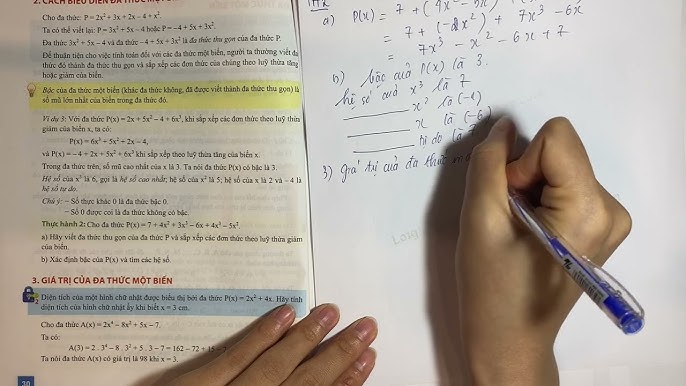 2. CÁCH BIỂU DIỄN ĐA THỨC MỘT BIẾN
Cho đa thức: P = 2x² + 3x + 2x – 4 + x².
Ta có thể viết lại: P = 3x² + 5x – 4 hoặc P = –4 + 5x + 3x².
Đa thức 3x² + 5x – 4 và đa thức –4 + 5x + 3x² là đa thức thu gọn của đa thức P.
Để thuận tiện cho việc tính toán với các đa thức một biến, người ta thường viết đa
thức đó thành đa thức thu gọn và sắp xếp các đơn thức của chúng theo luỹ thừa tăng
hoặc giảm của biến.
Bậc của đa thức một biến (khác đa thức không, đã được viết thành đa thức thu gọn) là
số mũ lớn nhất của biến trong đa thức đó.
Ví dụ 3: Với đa thức P(x) = 2x + 5x² – 4 + 6x³, khi sắp xếp các đơn thức theo luỹ thừa
giảm của biến x, ta có:
P(x) = 6x³ + 5x² + 2x – 4,
và P(x) = –4 + 2x + 5x² + 6x³ khi sắp xếp theo luỹ thừa tăng của biến x.
Trong đa thức trên, số mũ cao nhất của x là 3. Ta nói đa thức P(x) có bậc là 3.
Hệ số của x³ là 6, gọi là hệ số cao nhất; hệ số của x² là 5; hệ số của x là 2 và –4 là
hệ số tự do.
Chú ý: – Số thực khác 0 là đa thức bậc 0.
– Số 0 được coi là đa thức không có bậc.
Thực hành 2: Cho đa thức P(x) = 7 + 4x² + 3x³ – 6x + 4x³ – 5x².
a) Hãy viết đa thức thu gọn của đa thức P và sắp xếp các đơn thức theo luỹ thừa giảm
của biến.
b) Xác định bậc của P(x) và tìm các hệ số.
3. GIÁ TRỊ CỦA ĐA THỨC MỘT BIẾN
Diện tích của một hình chữ nhật được biểu thị bởi đa thức P(x) = 2x² + 4x. Hãy tính
diện tích của hình chữ nhật ấy khi biết x = 3 cm.
Cho đa thức A(x) = 2x⁴ – 8x² + 5x – 7.
Ta có:
A(3) = 2 . 3⁴ – 8 . 3² + 5 . 3 – 7 = 162 – 72 + 15 – 7
Ta nói đa thức A(x) có giá trị là 98 khi x = 3.
30
a) P(x) = 7 + (4x²
= 7 + (-2x²) + 7x³ - 6x
= 7x³ - x² - 6x + 7
b) bậc của P(x) là 3.
hệ số của x³ là 7
x² là (-1)
x là (-6)
tự do là 7
3) Giá trị của đa thức